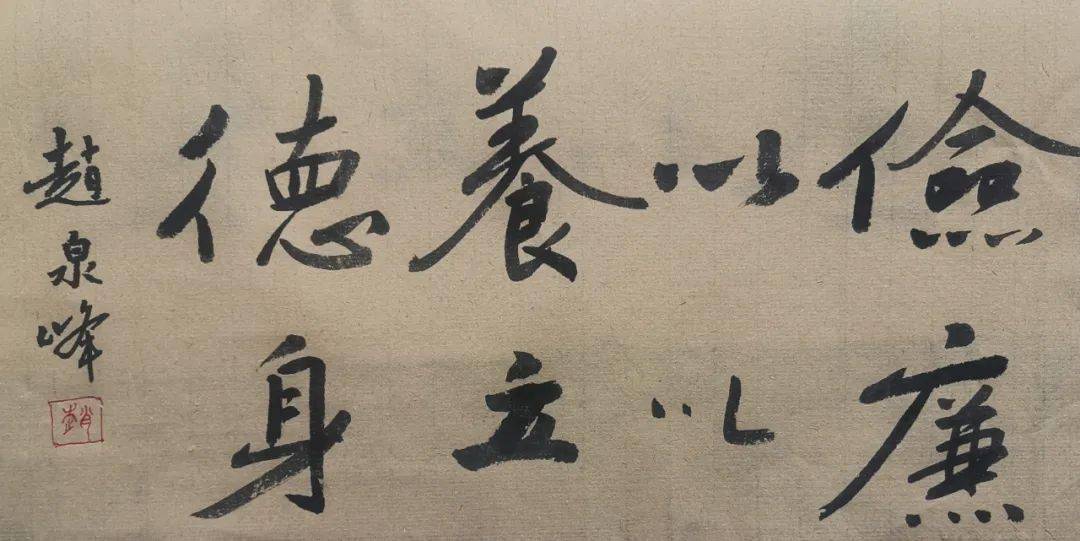 儉以養德
廉以立身
趙泉峰
趙